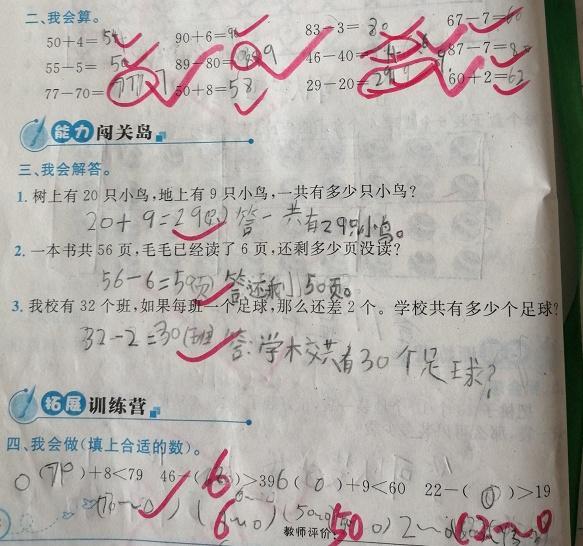 二、我会算。
50+4=54 90+6=96 83-3=80 67-7=60
55-5=50 89-80=9 46-40= 87-7=80
77-70=7 50+8=58 29-20= 60+2=62
能力 闯关岛
三、我会解答。
1. 树上有 20 只小鸟,地上有 9 只小鸟,一共有多少只小鸟?
20+9=29(只) 答一共有29只小鸟。
2. 一本书共 56 页,毛毛已经读了 6 页,还剩多少页没读?
56-6=50页 答还剩50页。
3. 我校有 32 个班,如果每班一个足球,那么还差 2 个。学校共有多少个足球?
32-2=30(班) 答:学校共有30个足球?
拓展 训练营
四、我会做(填上合适的数)。
( )+8<79 46-(6)>39 ( 0 )+9<60 22-( 0 )>19
6~0
教师评价 50 2~0